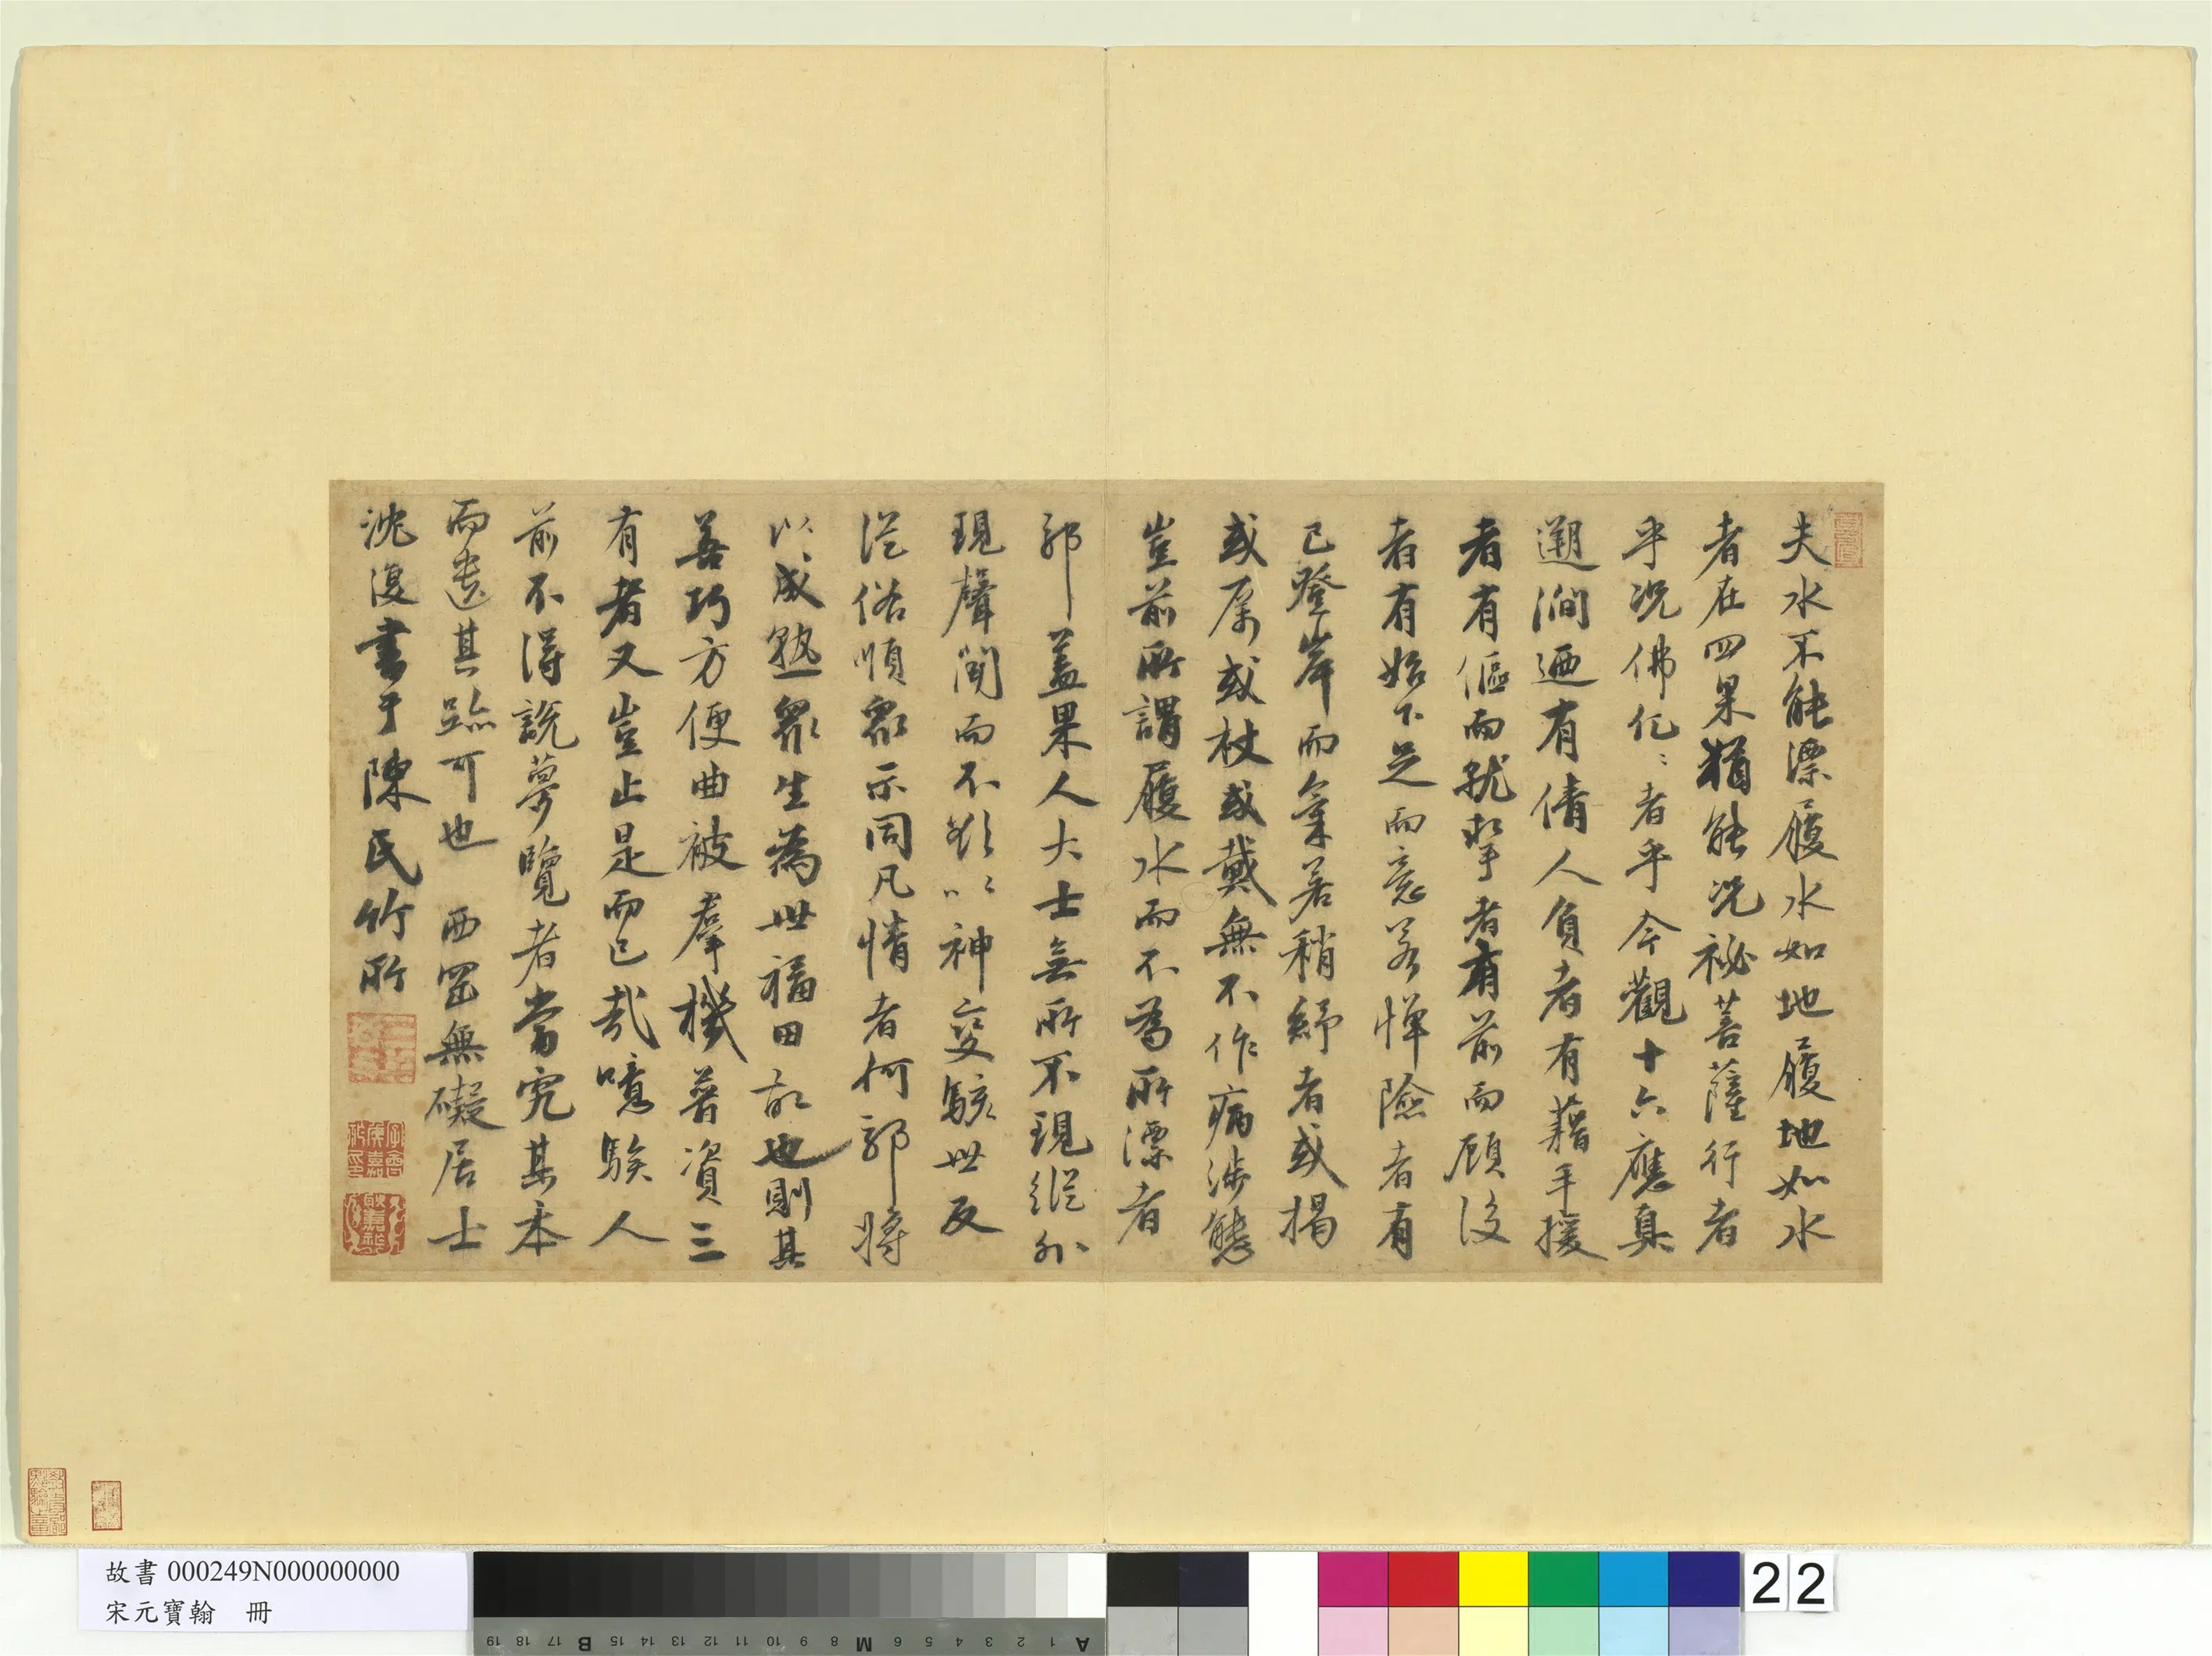 夫水不能漂履水如地履地如水
者在四果猶能况祕菩薩行者
乎况佛化〻者乎今觀十六應真
遡澗迺有倩人負者有藉手援
者有傴而就挈者有前而顧後
者有始下足而意若憚險者有
已登岸而氣若稍紓者或揭
或厲或杖或戴無不作病涉態
豈前所謂履水而不為所漂者
耶蓋果人大士無所不現縱外
現聲聞而不欲以神變駭世反
從俗順衆示同凡情者何耶將
以成熟衆生為世福田故也則其
善巧方便曲被羣機普資三
有者又豈止是而已哉噫騃人
前不得説夢覽者當究其本
而遺其跡可也 西罡無礙居士
沈復書于陳氏竹所
故書 000249N000000000
宋元寶翰 冊
A 1 2 3 4 5 6 M 8 9 10 11 12 13 14 15 B 17 18 19
22